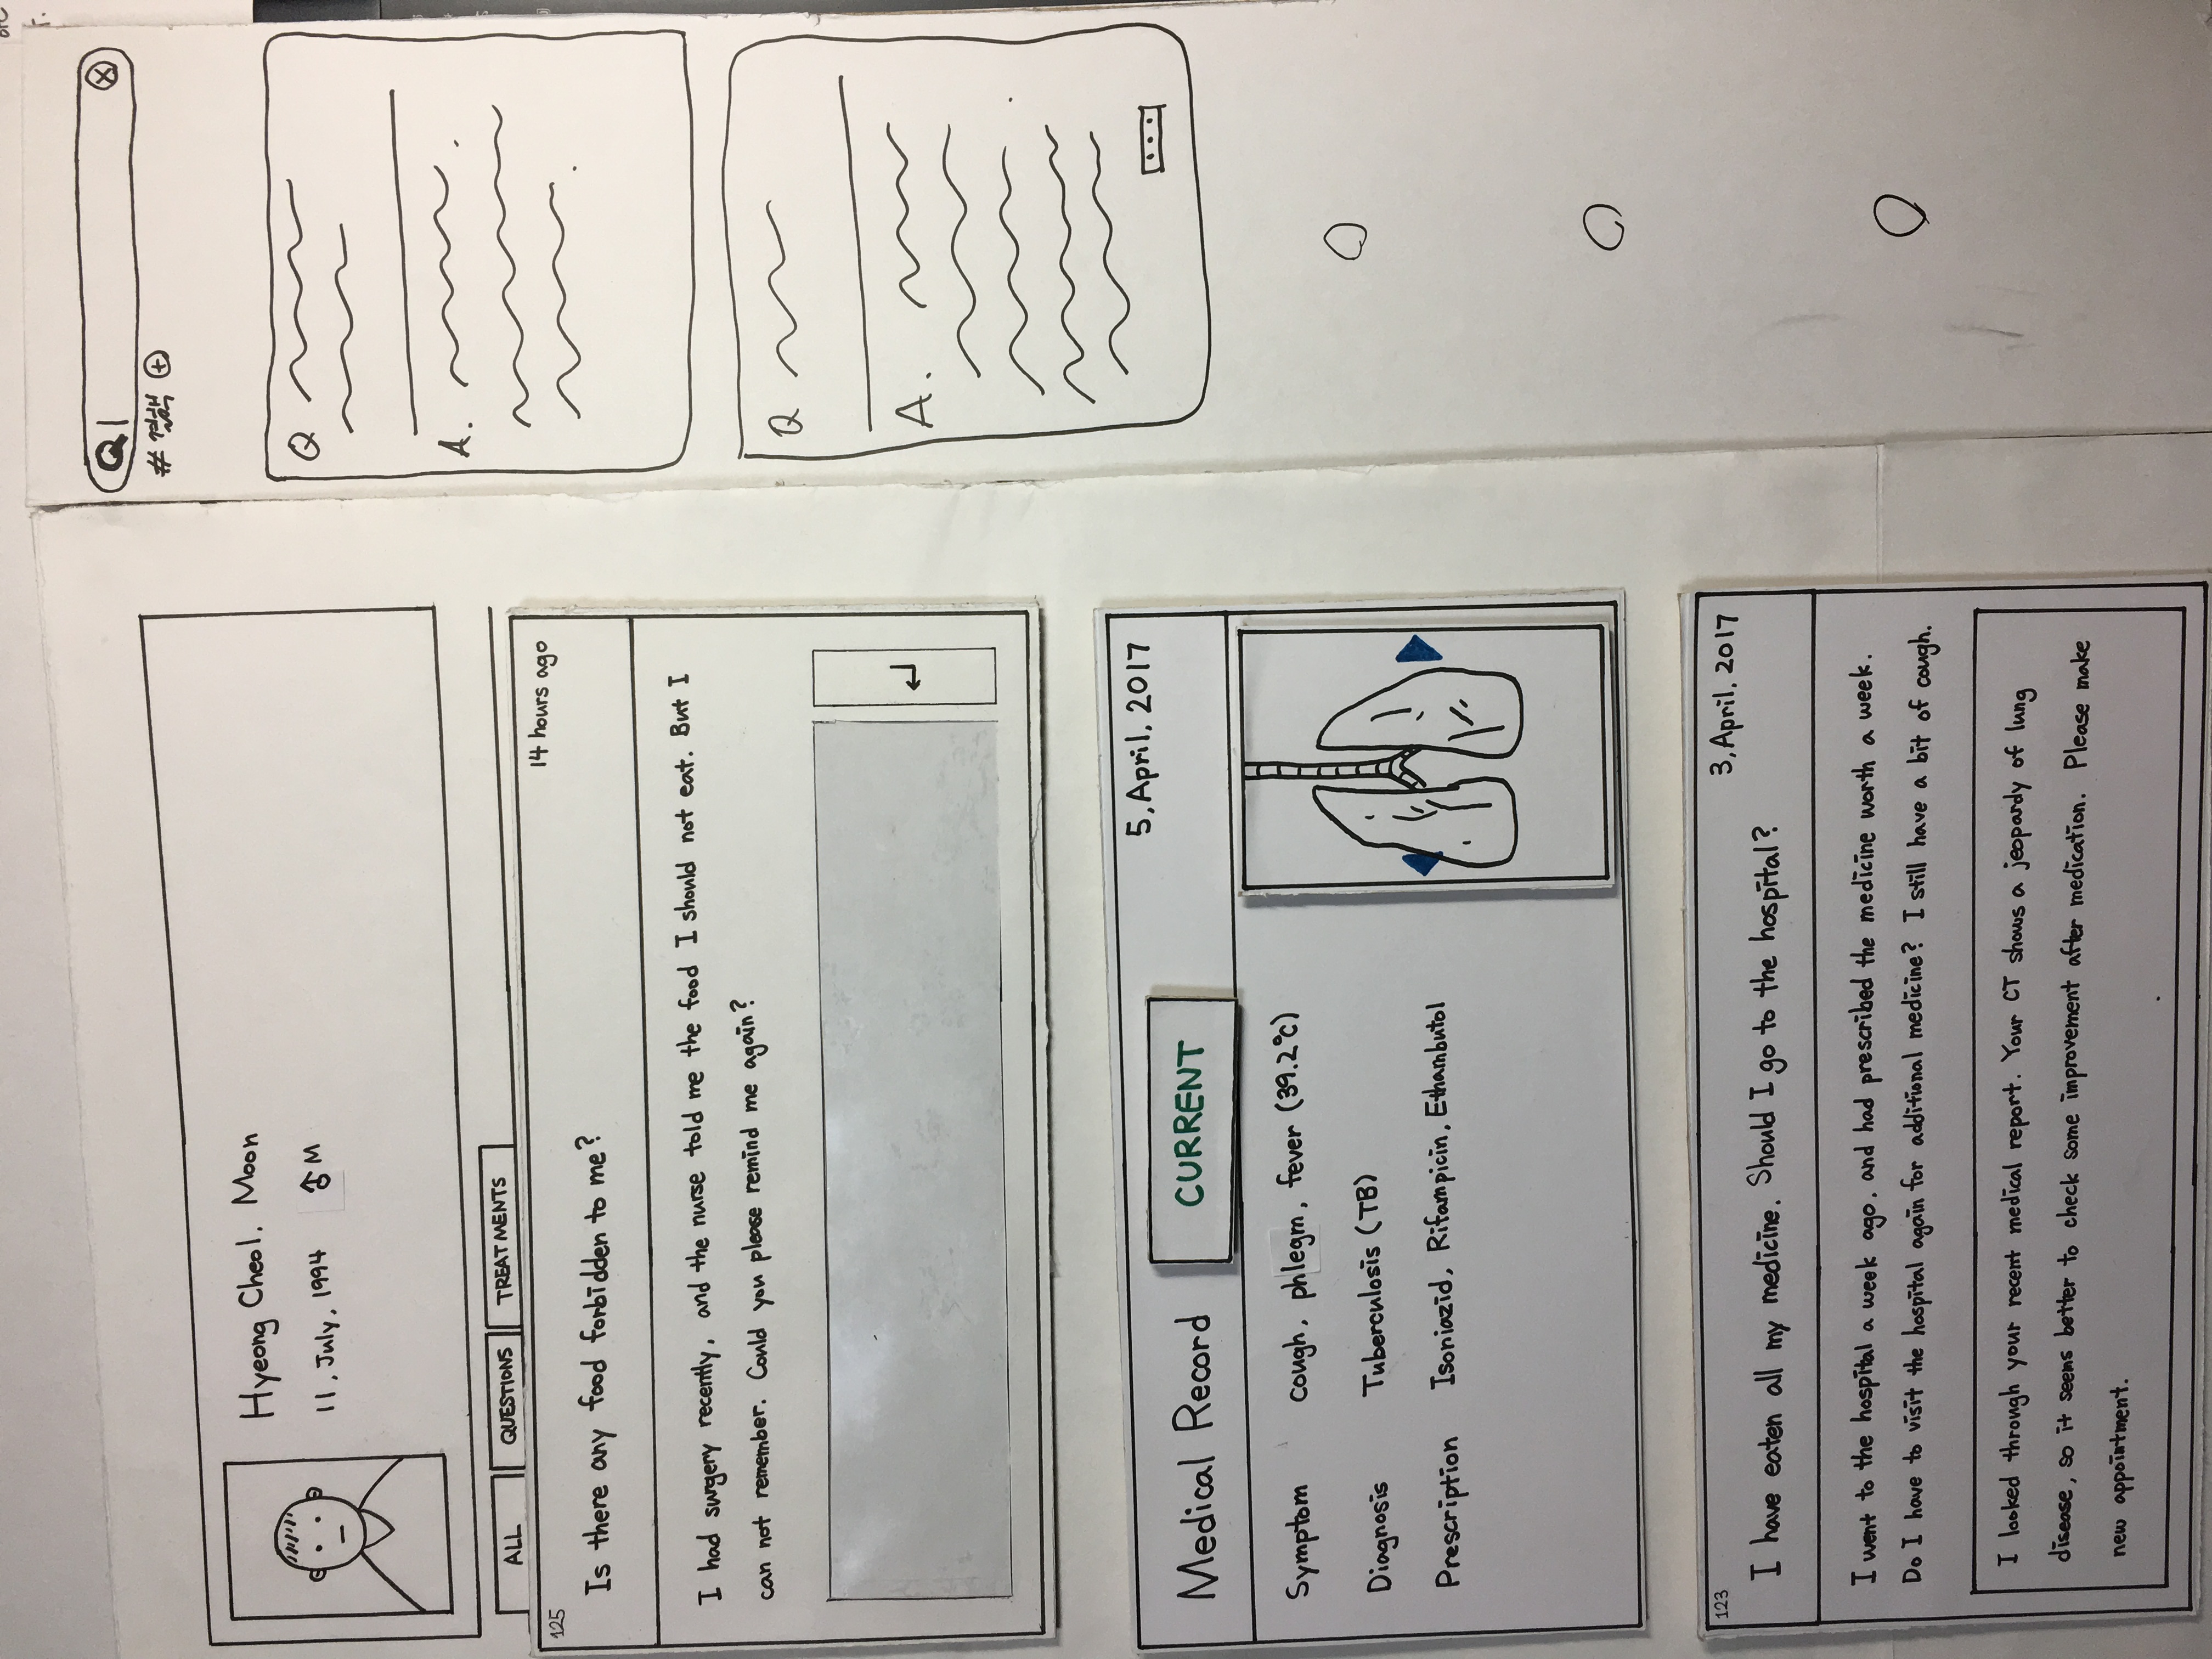 Hyeong Cheol. Moon
11, July, 1994 ♂M
ALL
QUESTIONS
TREATMENTS
125
14 hours ago
Is there any food forbidden to me?
I had surgery recently, and the nurse told me the food I should not eat. But I
can not remember. Could you please remind me again?
Medical Record
CURRENT
5, April, 2017
Symptom cough, phlegm, fever (39.2°C)
Diagnosis Tuberculosis (TB)
Prescription Isoniazid, Rifampicin, Ethambutol
123
3, April, 2017
I have eaten all my medicine. Should I go to the hospital?
I went to the hospital a week ago, and had prescribed the medicine worth a week.
Do I have to visit the hospital again for additional medicine? I still have a bit of cough.
I looked through your recent medical report. Your CT shows a jeopardy of lung
disease, so it seems better to check some improvement after medication. Please make
new appointment.
# 결핵
Q
A.
Q
A.